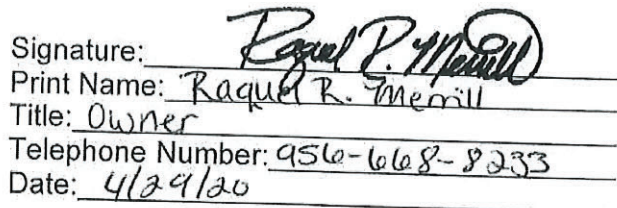 Signature: Raquel R. Merrill
Print Name: Raquel R. Merrill
Title: Owner
Telephone Number: 956-668-8233
Date: 4/29/20